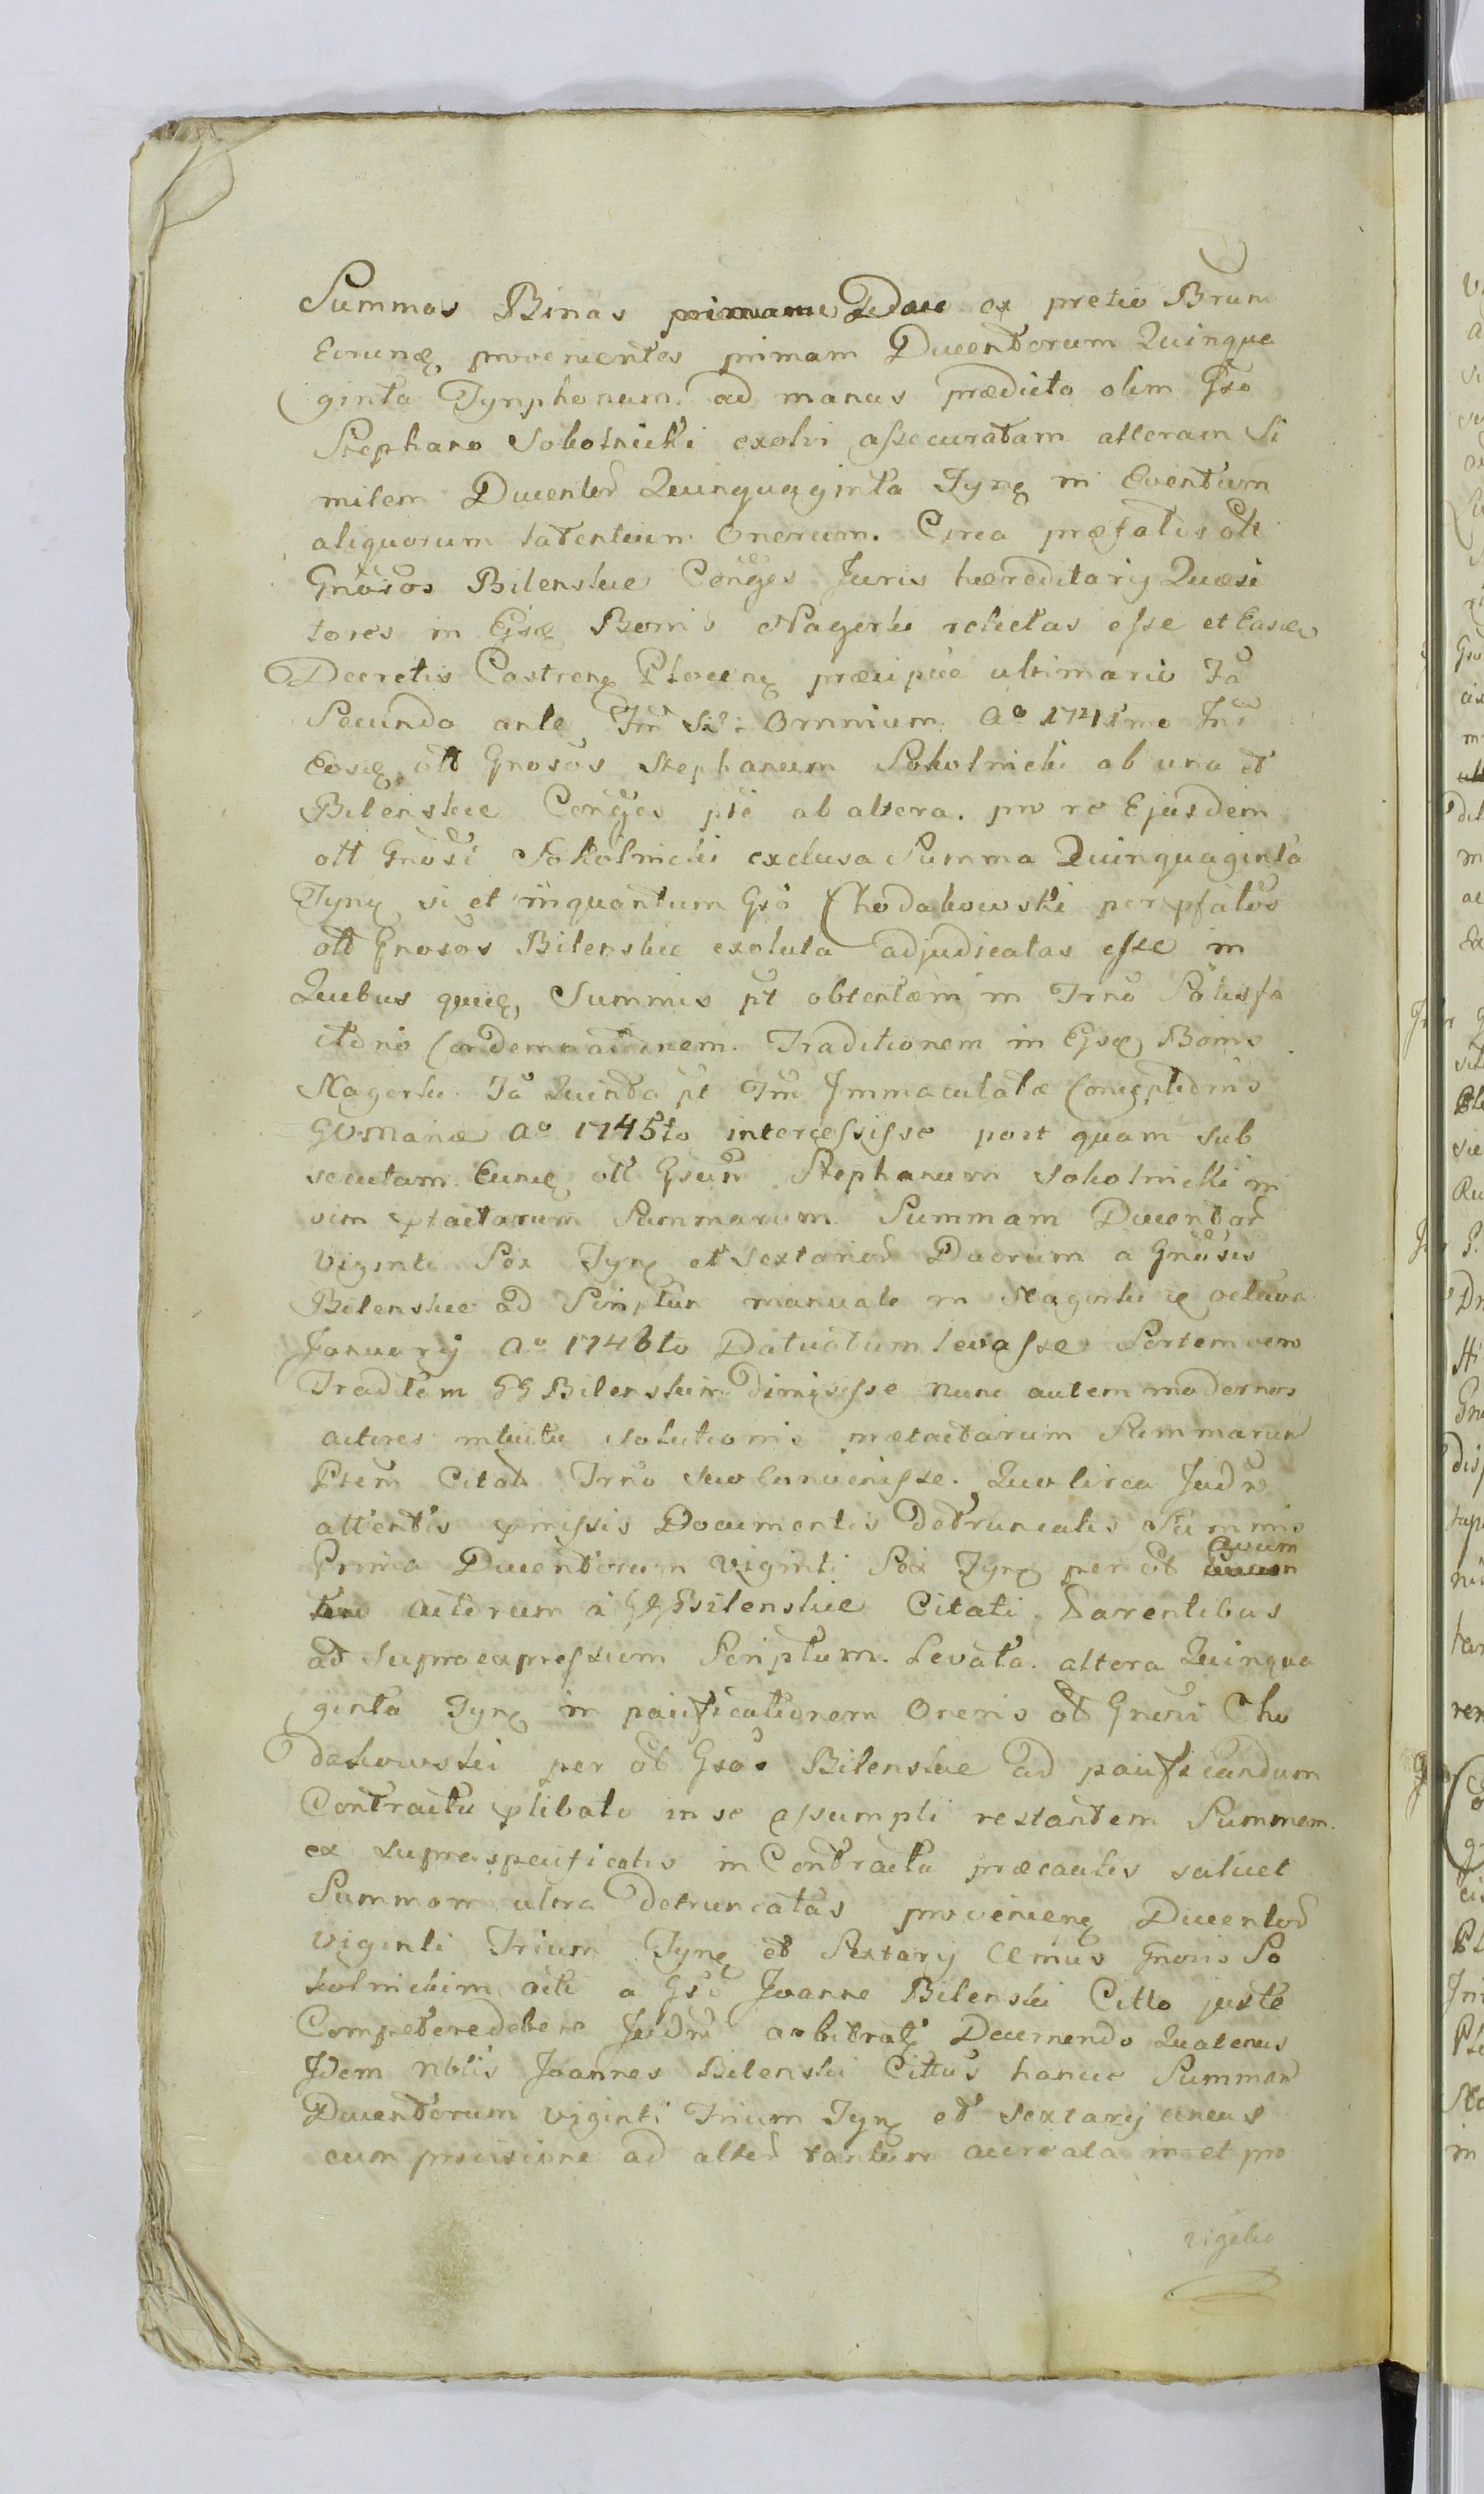 Summas Binas ex pretio Brum
Eorung provenientes primam Ducentorum Quinqua
ginta Tynphonum ad manus prædicto olim Gso
Stephano Sokolnicki exolvi assecuratam alteram Si
milem Ducentor Quinquaginta Tynq in Eventum
aliquorum latentium Onerum. Circa præfatis olt
Gnosos Bilenskie Conges Juris hæreditarij Quæsi
tores in Ejsq Bonis Nagorki relictas esse et Easq
Decretis Castrenq Plocenq præcipue ultimario Fa
Secunda ante Frm Omnium Aº 1741mo
Eosq olt Gnosos Stephanum Sokolnicki ab una et
Bilenskie Conges pte ab altera. pro re Ejusdem
olt Gnosi Sokolnicki exclusa Summa Quinquaginta
Tynq si et inquantum Gso Chodakowski per pfatos
olt Gnosos Bilenskie exoluta adjudicatas esse in
Quibus quiq, Summis pt obtentam in Trno Satisfa
ctionis Condemnationem. Traditionem in Ejsq Bonis
Nagorki Fa Quinta pt Frm Immaculatæ Conceptionis
GVManæ Aº 1745to intercessisse post quam Sub
secutam Eunq olt Gsum Stephanum Sokolnicki in
vim ptactarum Summarum Summam Ducentor
Viginti Sex Tynq et Sextarior Duorum a Gnosis
Bilenskie ad Scriptum manuale in Nagorki octava
Januarij Aº 1746to Datuatum levasse Sortem vero
Traditam GG Bilenskim dimisisse nunc autem modernos
actores intuitu Solutionis prætactarum Summarum
Ptem Citat Trno Suo Convenisse. Quo Circa Judm
attentis pmissis Documentis Detruncatis Summis
Prima Ducentorum Viginti Sex Tynq per olt Avum
actorum a GG Bilenskie Citati Parentibus
ad Supraexpressum Scriptum. Levata. altera Quinqua
ginta Tynq in pacificationem Oneris olt Gnosi Cho
dakowski per olt Gsos Bilenskie ad pacificandum
Contractu plibato in se assumpti restantem Summam
ex Supraspecificatis in Contractu præcautis saluet
Summam ultra Detruncatas provenienq Ducentor
Viginti Trium Tynq et Sextarij Unius Gnosis So
kolnickim acti a Gso Joanne Bilenski Citto juste
Competere debere Judm arbitratq Decernendo Quatenus
Idem Nblis Joannes Bilenski Cittus hancce Summam
Ducentorum Viginti Trium Tynq et Sextarij unius
cum provisione ad alter tantum accreata in et pro
vigilia